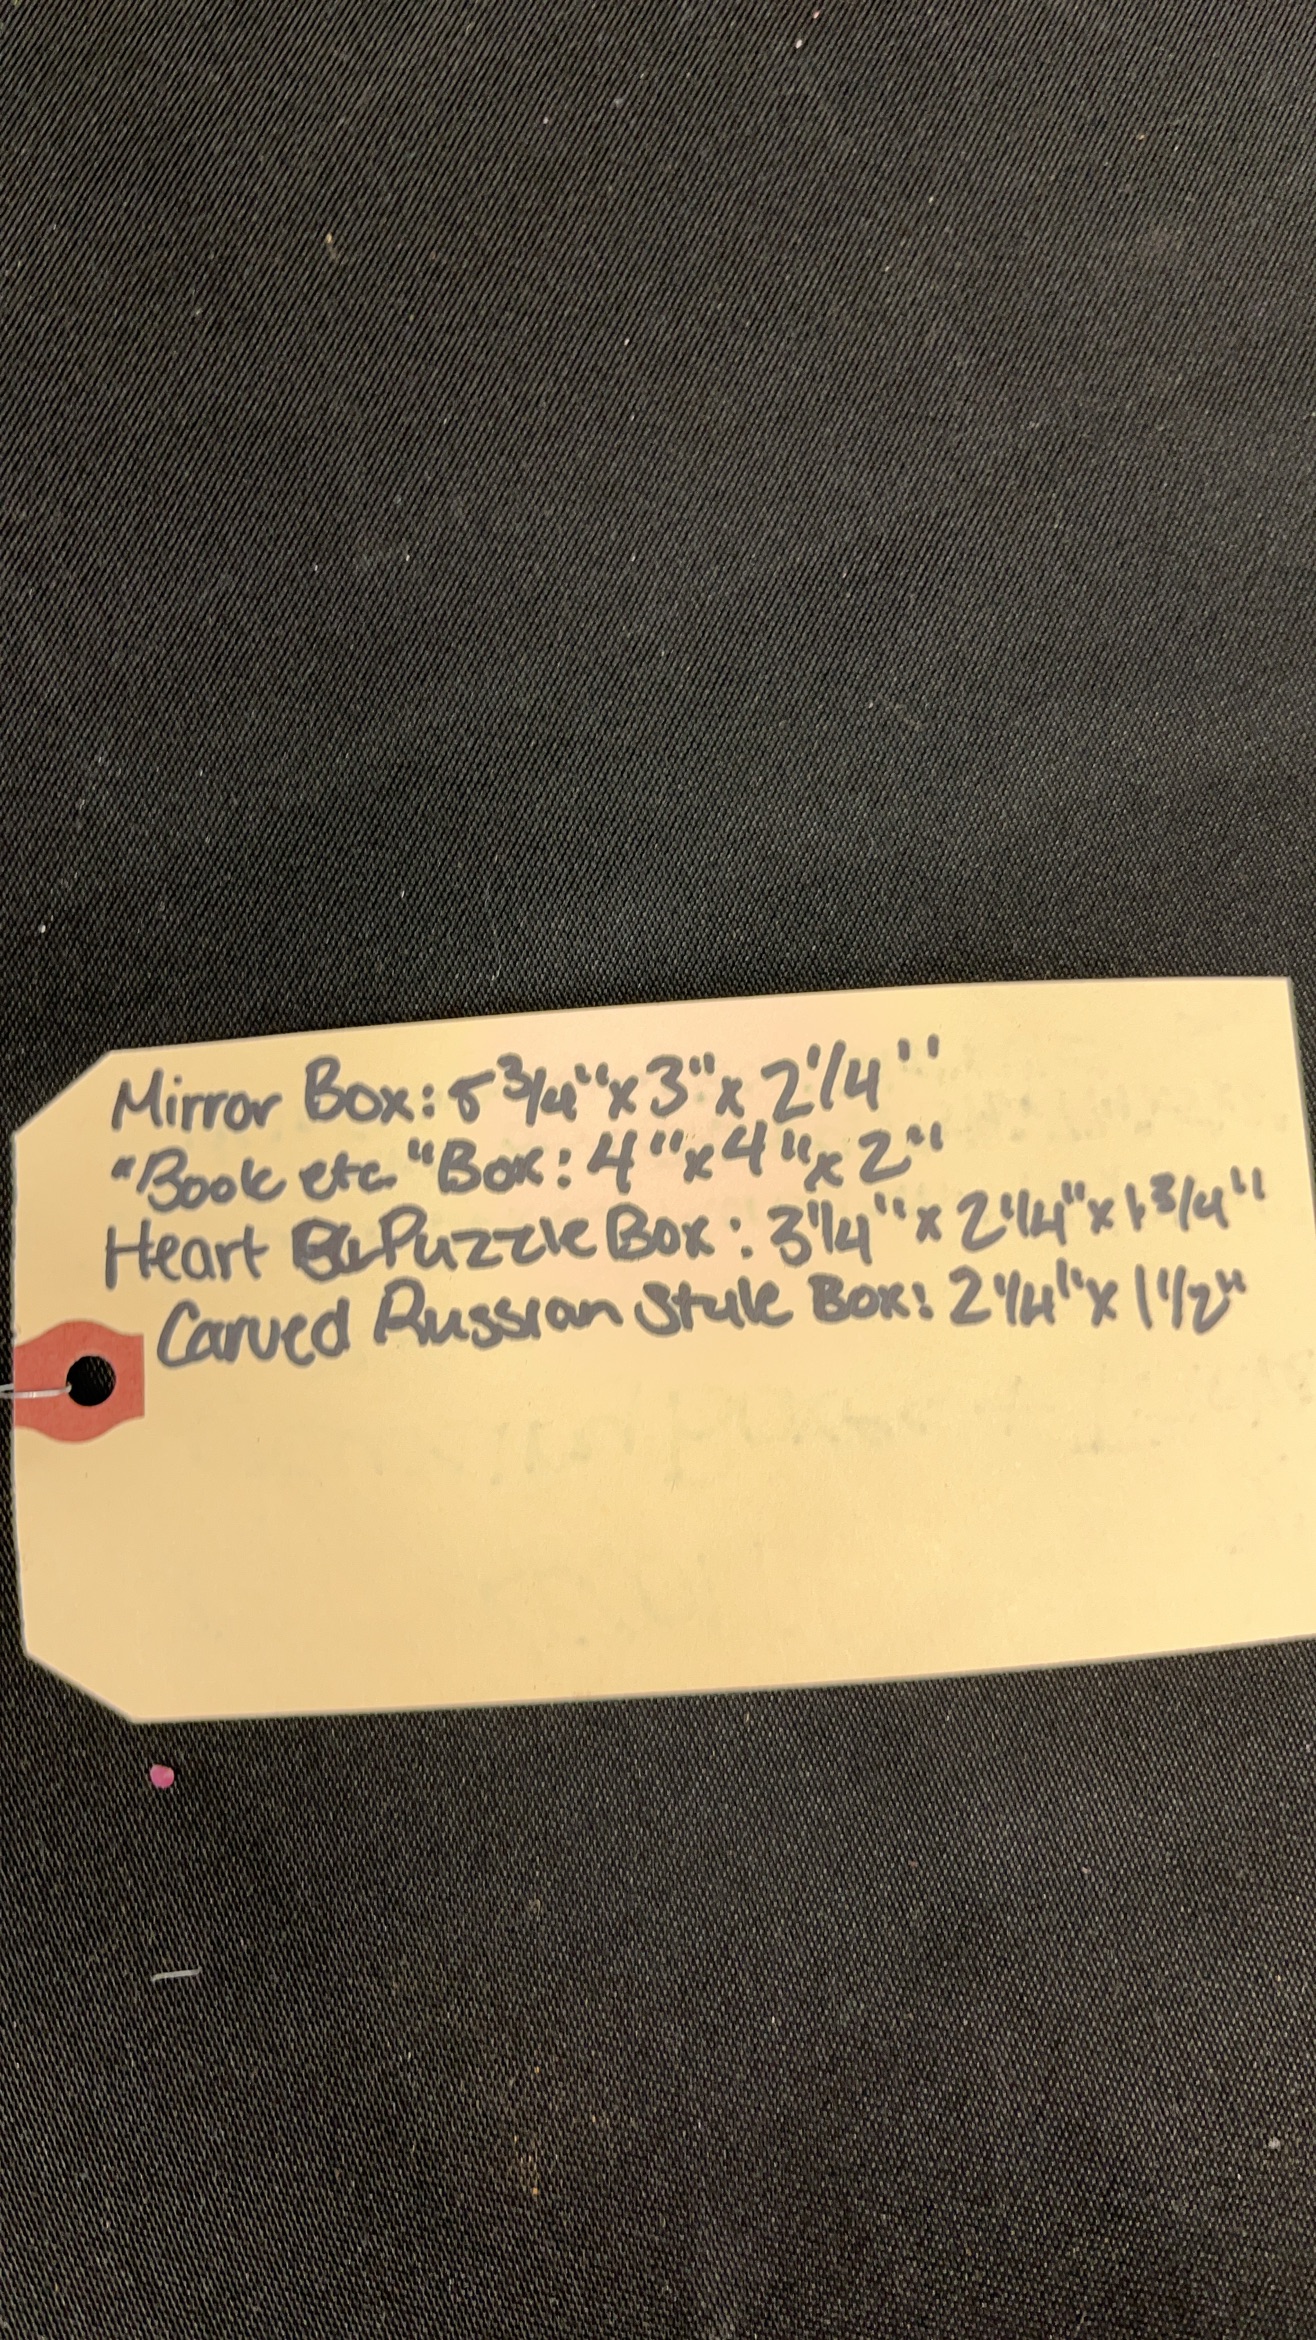 Mirror Box: 5 3/4" x 3" x 2 1/4"
"Book etc." Box: 4" x 4" x 2"
Heart Puzzle Box: 3 1/4" x 2 1/4" x 1 3/4"
Carved Russian Style Box: 2 1/4" x 1 1/2"